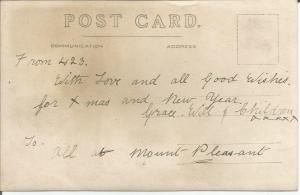 POST CARD.
COMMUNICATION ADDRESS
From 423.
With Love and all Good Wishes.
for X mas and New Year.
Grace. Will & Children
x x x x x
To.
All at Mount Pleasant